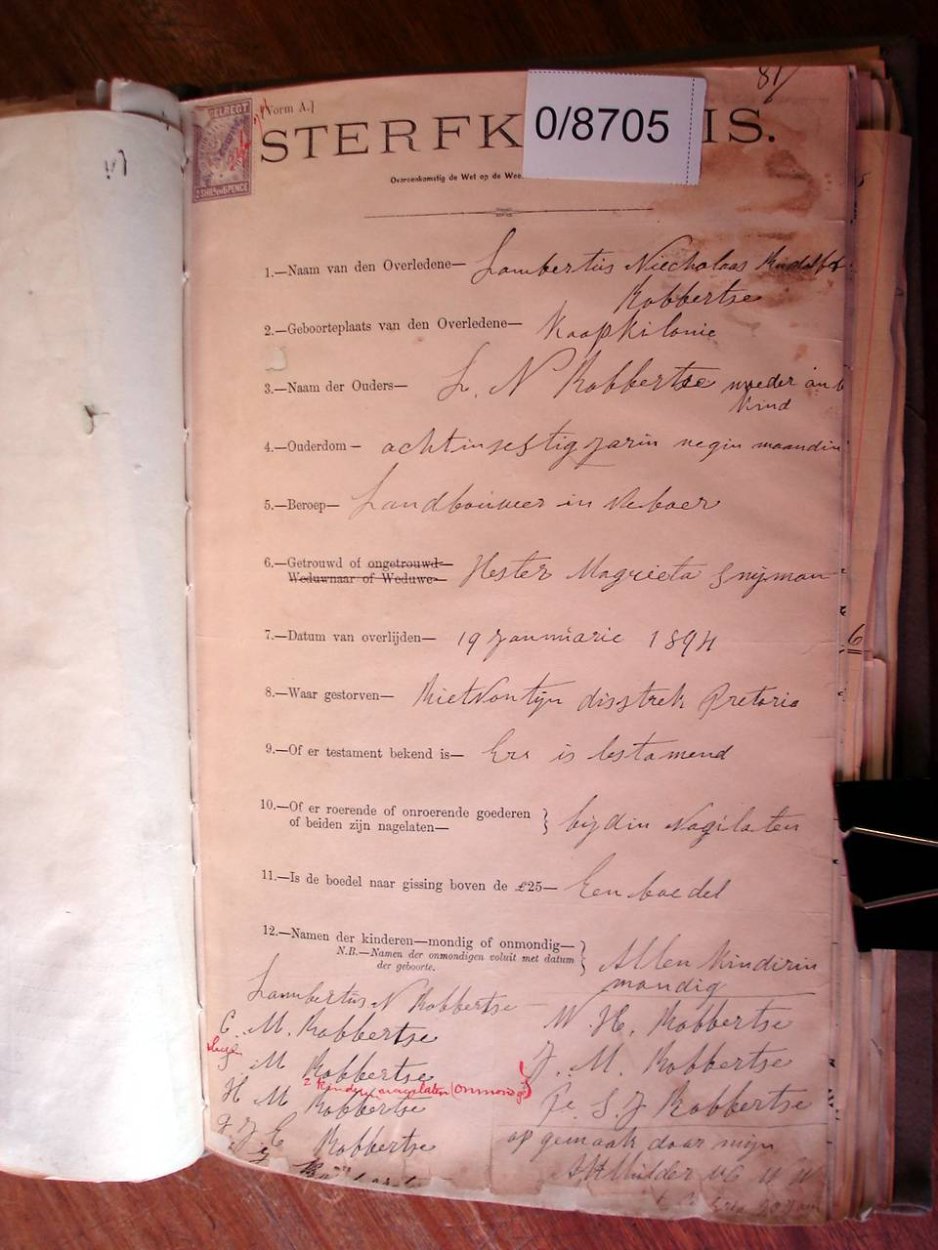 81
[Vorm A.]
STERFK 0/8705 IS.
Overeenkomstig de Wet op de Wee
1.—Naam van den Overledene— Lambertus Niecholaas
Robbertse
2.—Geboorteplaats van den Overledene— Kaapkilonie
3.—Naam der Ouders— L. N Robbertse moeder
kind
4.—Ouderdom— achtinsestig jarin negin maandin
5.—Beroep— Landbouwer in Veboer
6.—Getrouwd of ongetrouwd— Hester Magrieta Snijman
Weduwnaar of Weduwe—
7.—Datum van overlijden— 19 Januarie 1894
8.—Waar gestorven— Rietvontyn disstrek Pretoria
9.—Of er testament bekend is— Err is testamend
10.—Of er roerende of onroerende goederen
of beiden zijn nagelaten— bijdin Nagilaten
11.—Is de boedel naar gissing boven de £25— Een boedel
12.—Namen der kinderen—mondig of onmondig— Allen Kinderin
N.B.—Namen der onmondigen voluit met datum
der geboorte.
mondig
Lambertus N Robbertse
C. M. Robbertse W. H. Robbertse
S. M Robbertse J. M. Robbertse
2 kinders nagelaten (onmondig)
H M Robbertse S. J Robbertse
J. E Robbertse op gemaak door mijn
Mulder